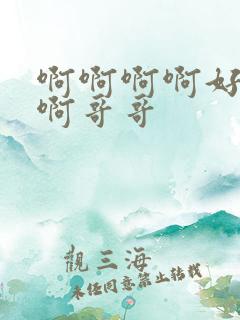 啊啊啊啊好
啊哥哥
觀三海
未经同意禁止转载